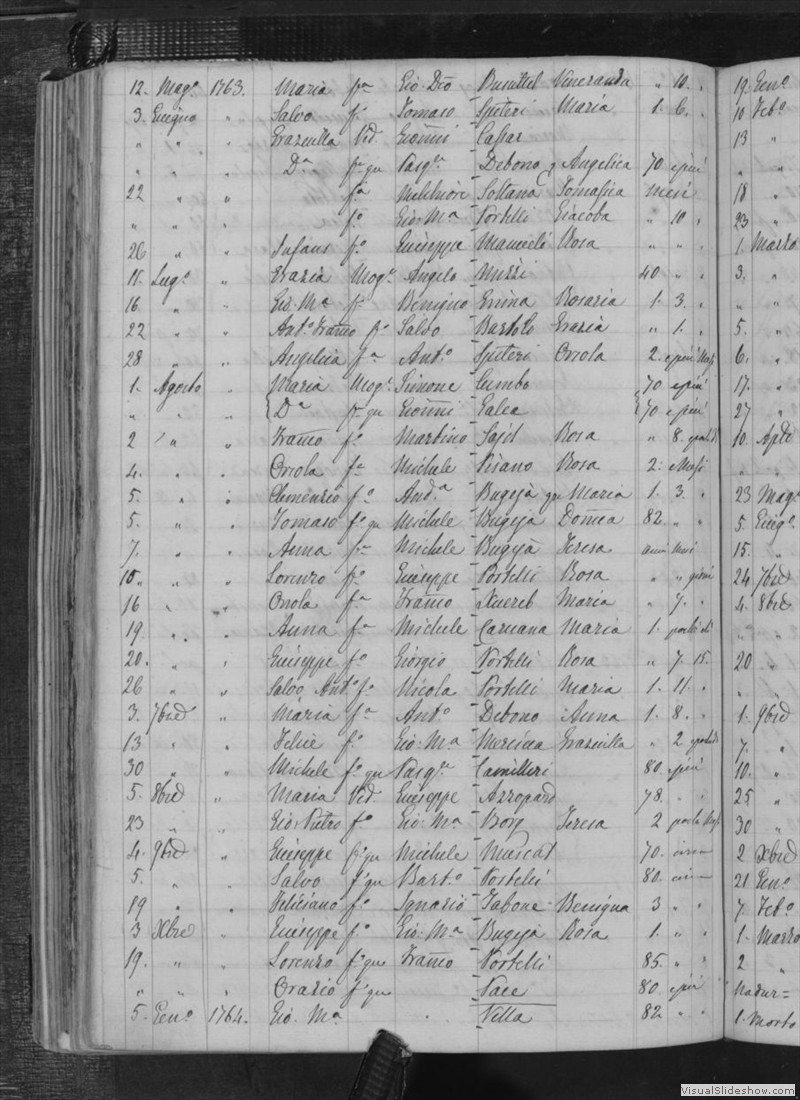 12. Mag.º 1763. Maria f.ª Gio: Dro Busuttil Veneranda " 10. "
3. Giugno " Salvo f.º Tomaso Spiteri Maria 1. 6. "
" " " Grazzulla Vid. Gioñni Cassar
" " " D.ª f.ª qu Pasq.ª Debono q Angelica 70 e piu
22 " " f.ª Melchior Sultana Tomasia mesi
" " " f.º Gio: M.ª Portelli Giacoba " 10 "
26 " " Infans f.º Giuseppe Mamueli Rosa " " "
11. Lug.º " Grazia Mog.e Angelo Mizzi 40 " "
16. " " Gio: M.ª f.º Benigno Grima Rosaria 1. 3. "
22 " " Ant.º Franco f.º Salvo Bartolo Grazia " 1. "
28 " " Angelica f.ª Ant.º Spiteri Orsola 2. e piu Mesi
1. Agosto " Maria Mog.e Simone Cumbo 70 e piu
" " " D.ª f.ª qu Gioñni Galea 70 e piu
2 " " Franco f.º Martino Sajd Rosa " 8.
4. " " Orsola f.ª Michele Pisano Rosa 2. e Mesi
5. " " Clemenzio f.º And.ª Bugeja qu Maria 1. 3. "
5. " " Tomaso f.º qu Michele Bugeja Domea 82. " "
7. " " Anna f.ª Michele Bugeja Teresa anni Mesi
10. " " Lorenzo f.º Giuseppe Portelli Rosa " " giorni
16 " " Orsola f.ª Franco Xuereb Maria " 7. "
19. " " Anna f.ª Michele Caruana Maria 1.
20. " " Giuseppe f.º Giorgio Portelli Rosa " 7. 15.
26 " " Salvo Ant.º f.º Nicola Portelli Maria 1. 11. "
3. 7bre " Maria f.ª Ant.º Debono Anna 1. 8. "
13 " " Felice f.º Gio: M.ª Mercieca Grazzulla " 2
30 " " Michele f.º qu Pasq.ª Camilleri 80. e piu
5. 8bre " Maria Vid. Giuseppe Azzopard 78. " "
23 " " Gio: Pietro f.º Gio: M.ª Borg Teresa 2
4. 9bre " Giuseppe f.º qu Michele Muscat 70. circa
5. " " Salvo f.º qu Bart.º Portelli 80. circa
19 " " Feliciano f.º Ignazio Tabone Benigna 3 " "
3 Xbre " Giuseppe f.º Gio: M.ª Bugeja Rosa 1. " "
19. " " Lorenzo f.º qu Franco Portelli 85. " "
" " " Orazio f.º qu Pace 80. e piu
5. Gen.º 1764. Gio. M.ª " " Vella 82. " "
19 Gen.º
10 Feb.º
13 "
18 "
23 "
1. Marzo
3. "
" "
5. "
6. "
17. "
27 "
10. Aple
" "
23 Mag.º
5. Giug.º
15. "
24 7bre
4. 8bre
" "
20 "
" "
1. 9bre
7. "
10. "
25 "
30 "
2 Xbre
21 Gen.º
7. Feb.º
1. Marzo
2 "
Nadur=
1. Morto
VisualSlideshow.com